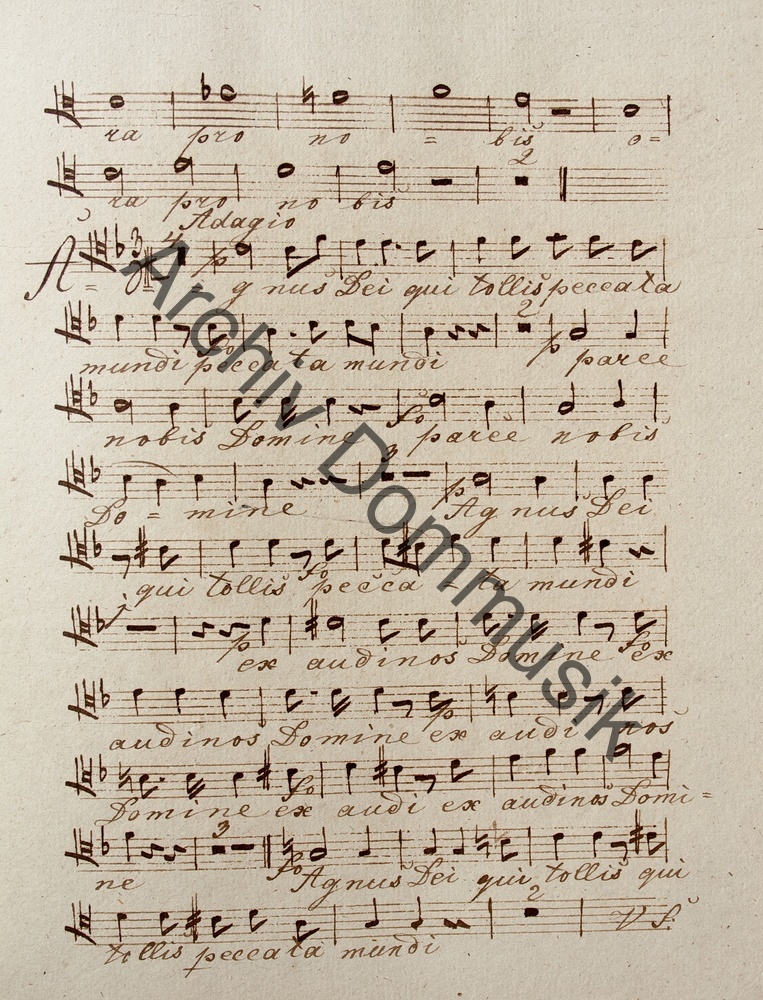 ra pro no = bis o=
2
ra pro no bis
Adagio
A = = gnus Dei qui tollis peccata
2
mundi peccata mundi parce
nobis Domine parce nobis
3
Do = mine Agnus Dei
qui tollis pecca = ta mundi
ex audinos Domine ex
audinos Domine ex audi nos
Domine ex audi ex audinos Domi=
3
ne Agnus Dei qui tollis qui
2
V S.
tollis peccata mundi
Archiv Dommusik